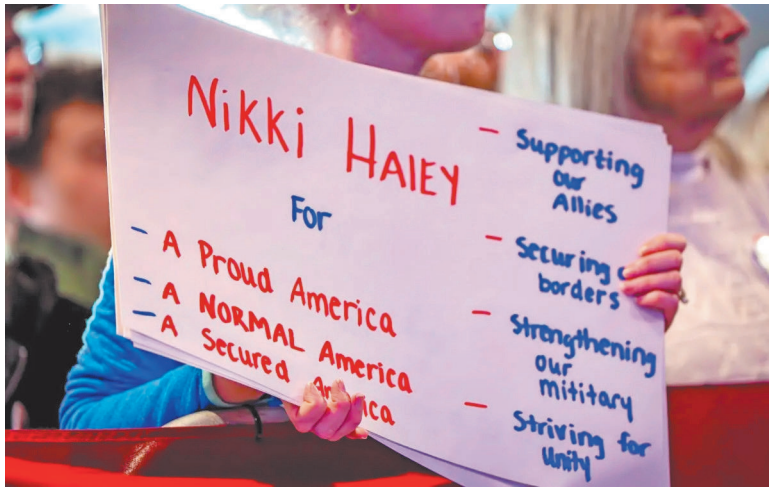 Nikki HAlEY
For
- A Proud America
- A NORMAL America
- A Secured
- Supporting
our
Allies
- Securing
borders
- Strengthening
our
mititary
- Striving for
Unity